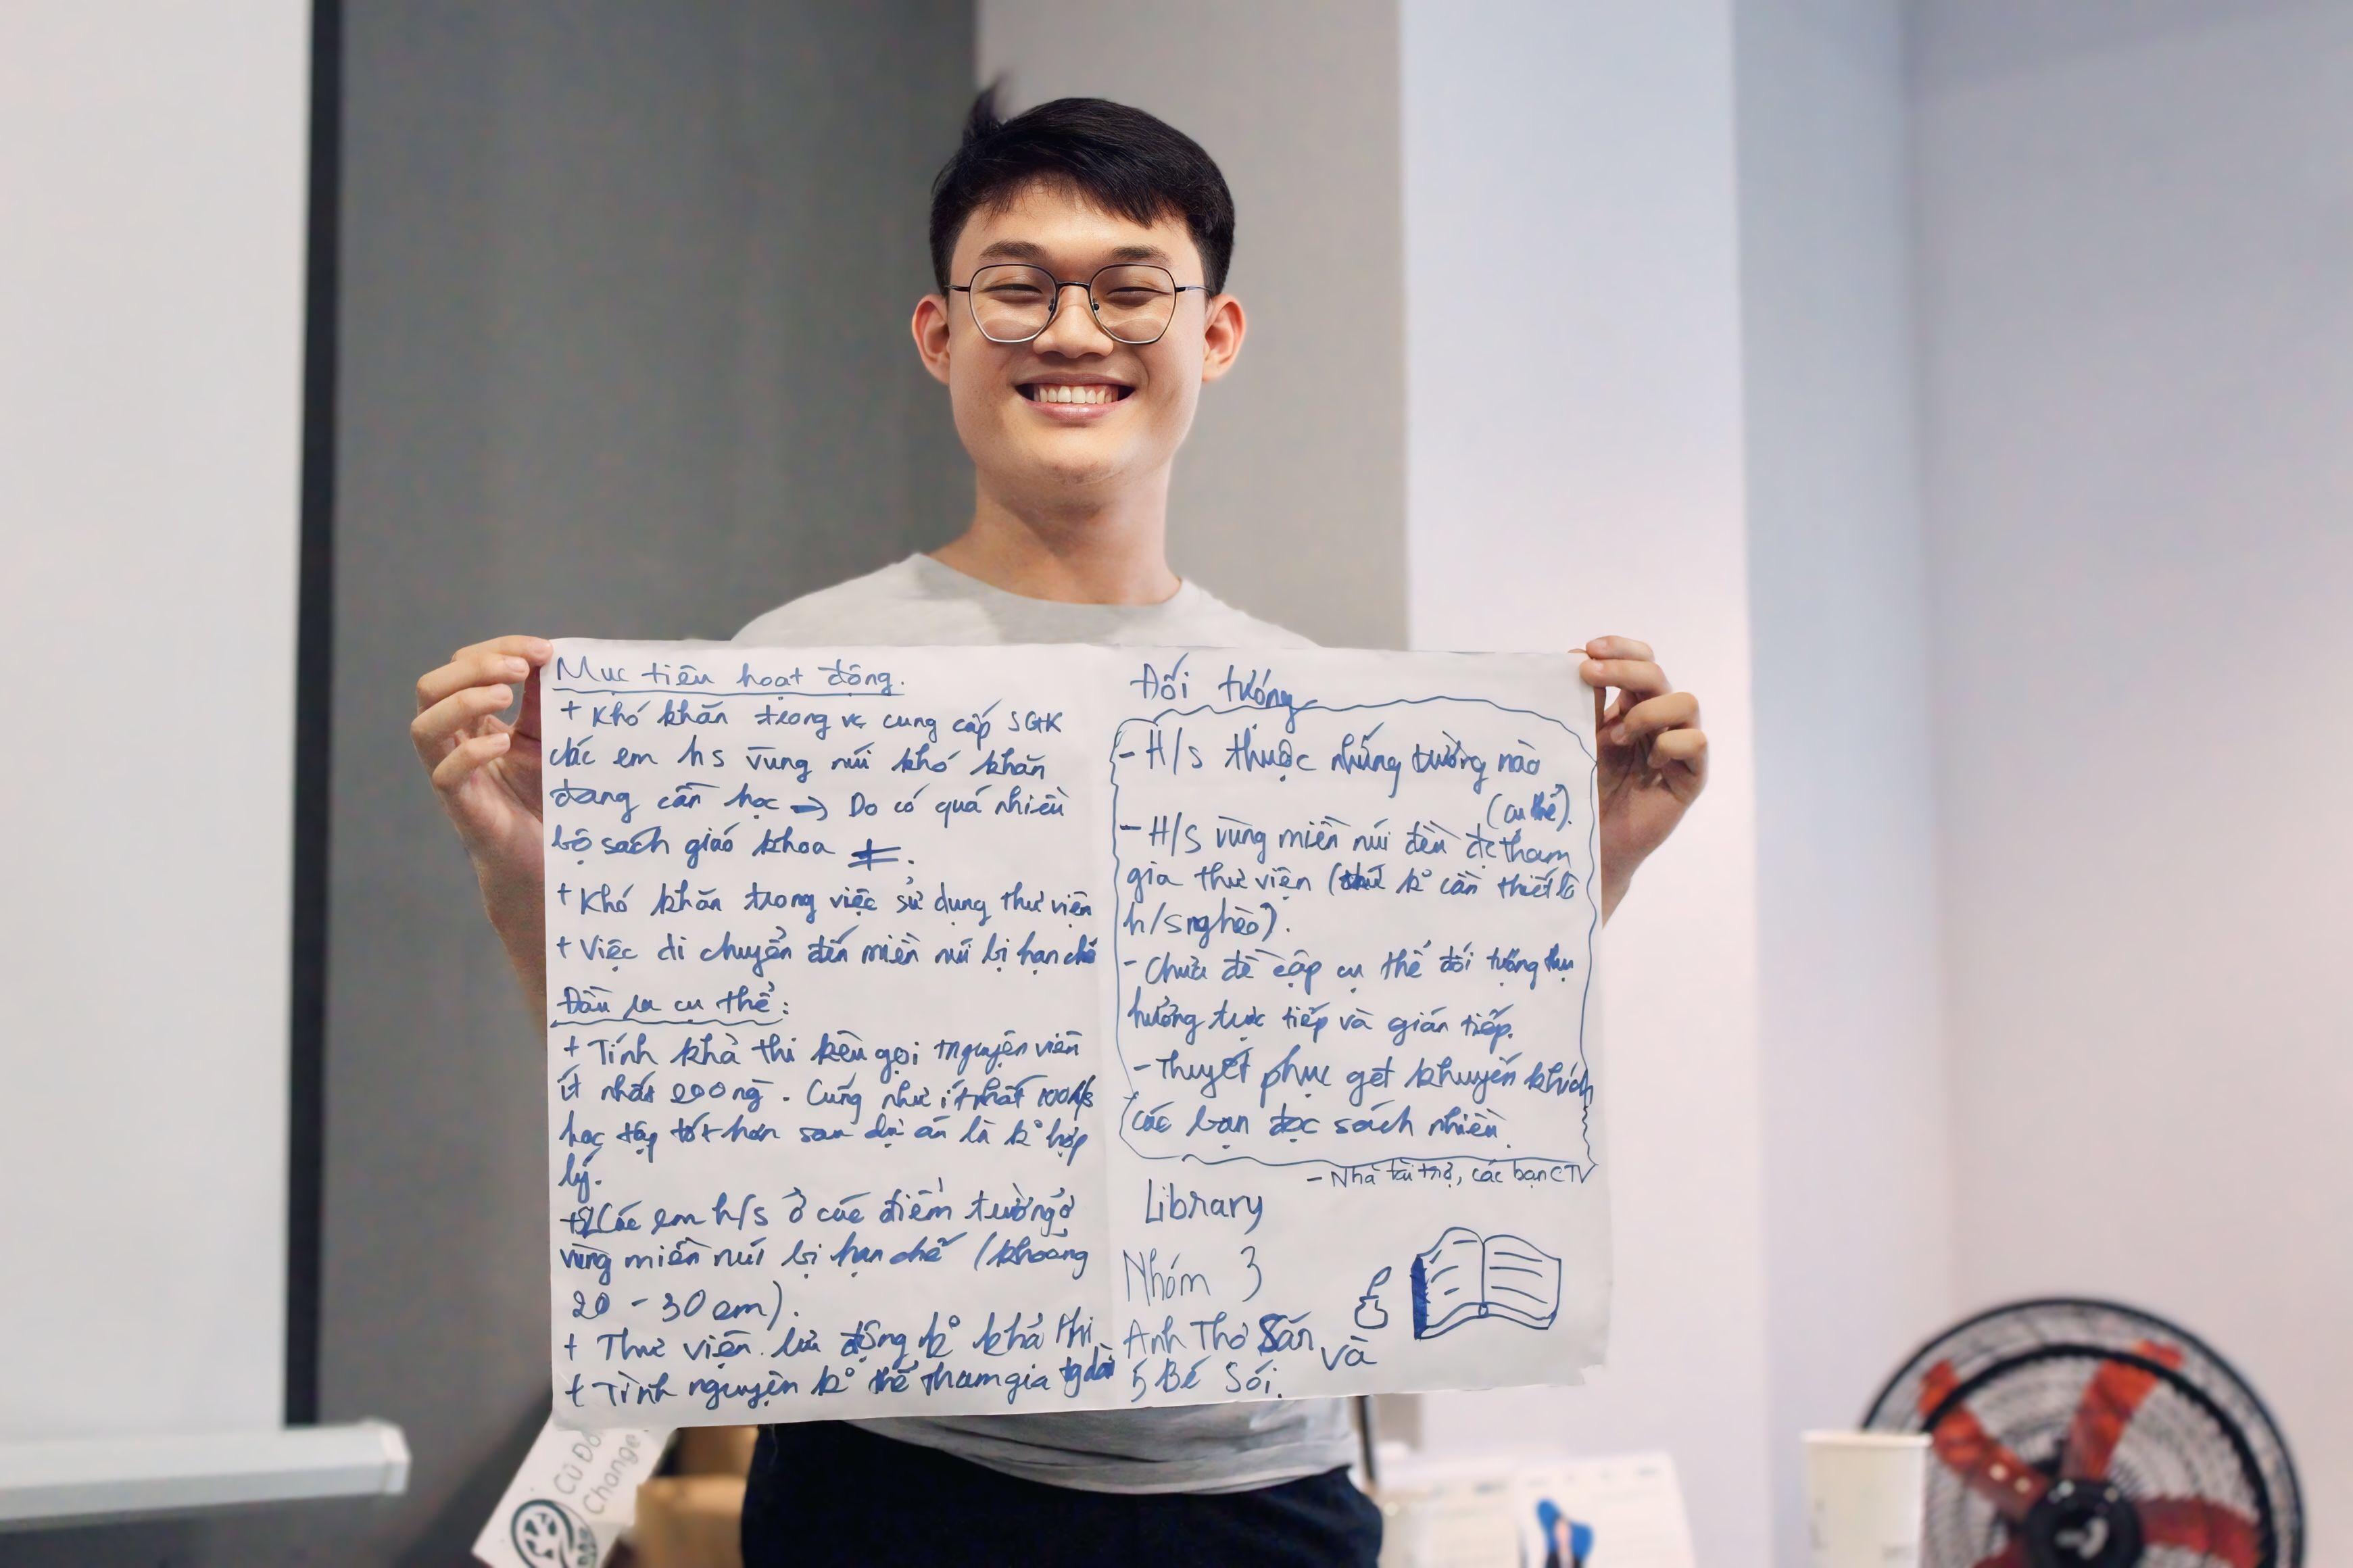 Mục tiêu hoạt động.
+ Khó khăn trong vc cung cấp SGK
các em hs vùng núi khó khăn
đang cần học → Do có quá nhiều
bộ sách giáo khoa ≠.
+ Khó khăn trong việc sử dụng thư viện
+ Việc di chuyển đến miền núi bị hạn chế
Đầu ra cụ thể:
+ Tính khả thi kêu gọi nguyện viên
ít nhất 200 ng. Cũng như ít nhất 100 h/s
học tập tốt hơn sau dự án là k° hợp
lý.
+ Các em h/s ở các điểm trường ở
vùng miền núi bị hạn chế (khoảng
20 - 30 em).
+ Thư viện lưu động k° khả thi
+ Tình nguyện k° thể tham gia tg dài
Đối tượng
- H/s thuộc những trường nào
(cụ thể).
- H/S vùng miền núi đều đc tham
gia thư viện (k° cần thiết là
h/s nghèo).
- Chưa đề cập cụ thể đối tượng thụ
hưởng trực tiếp và gián tiếp.
- Thuyết phục khuyến khích
các bạn đọc sách nhiều.
- Nhà tài trợ, các bạn CTV
Library
Nhóm 3
Anh Thơ Săn và
5 Bé Sói.
Cú Đ
Change